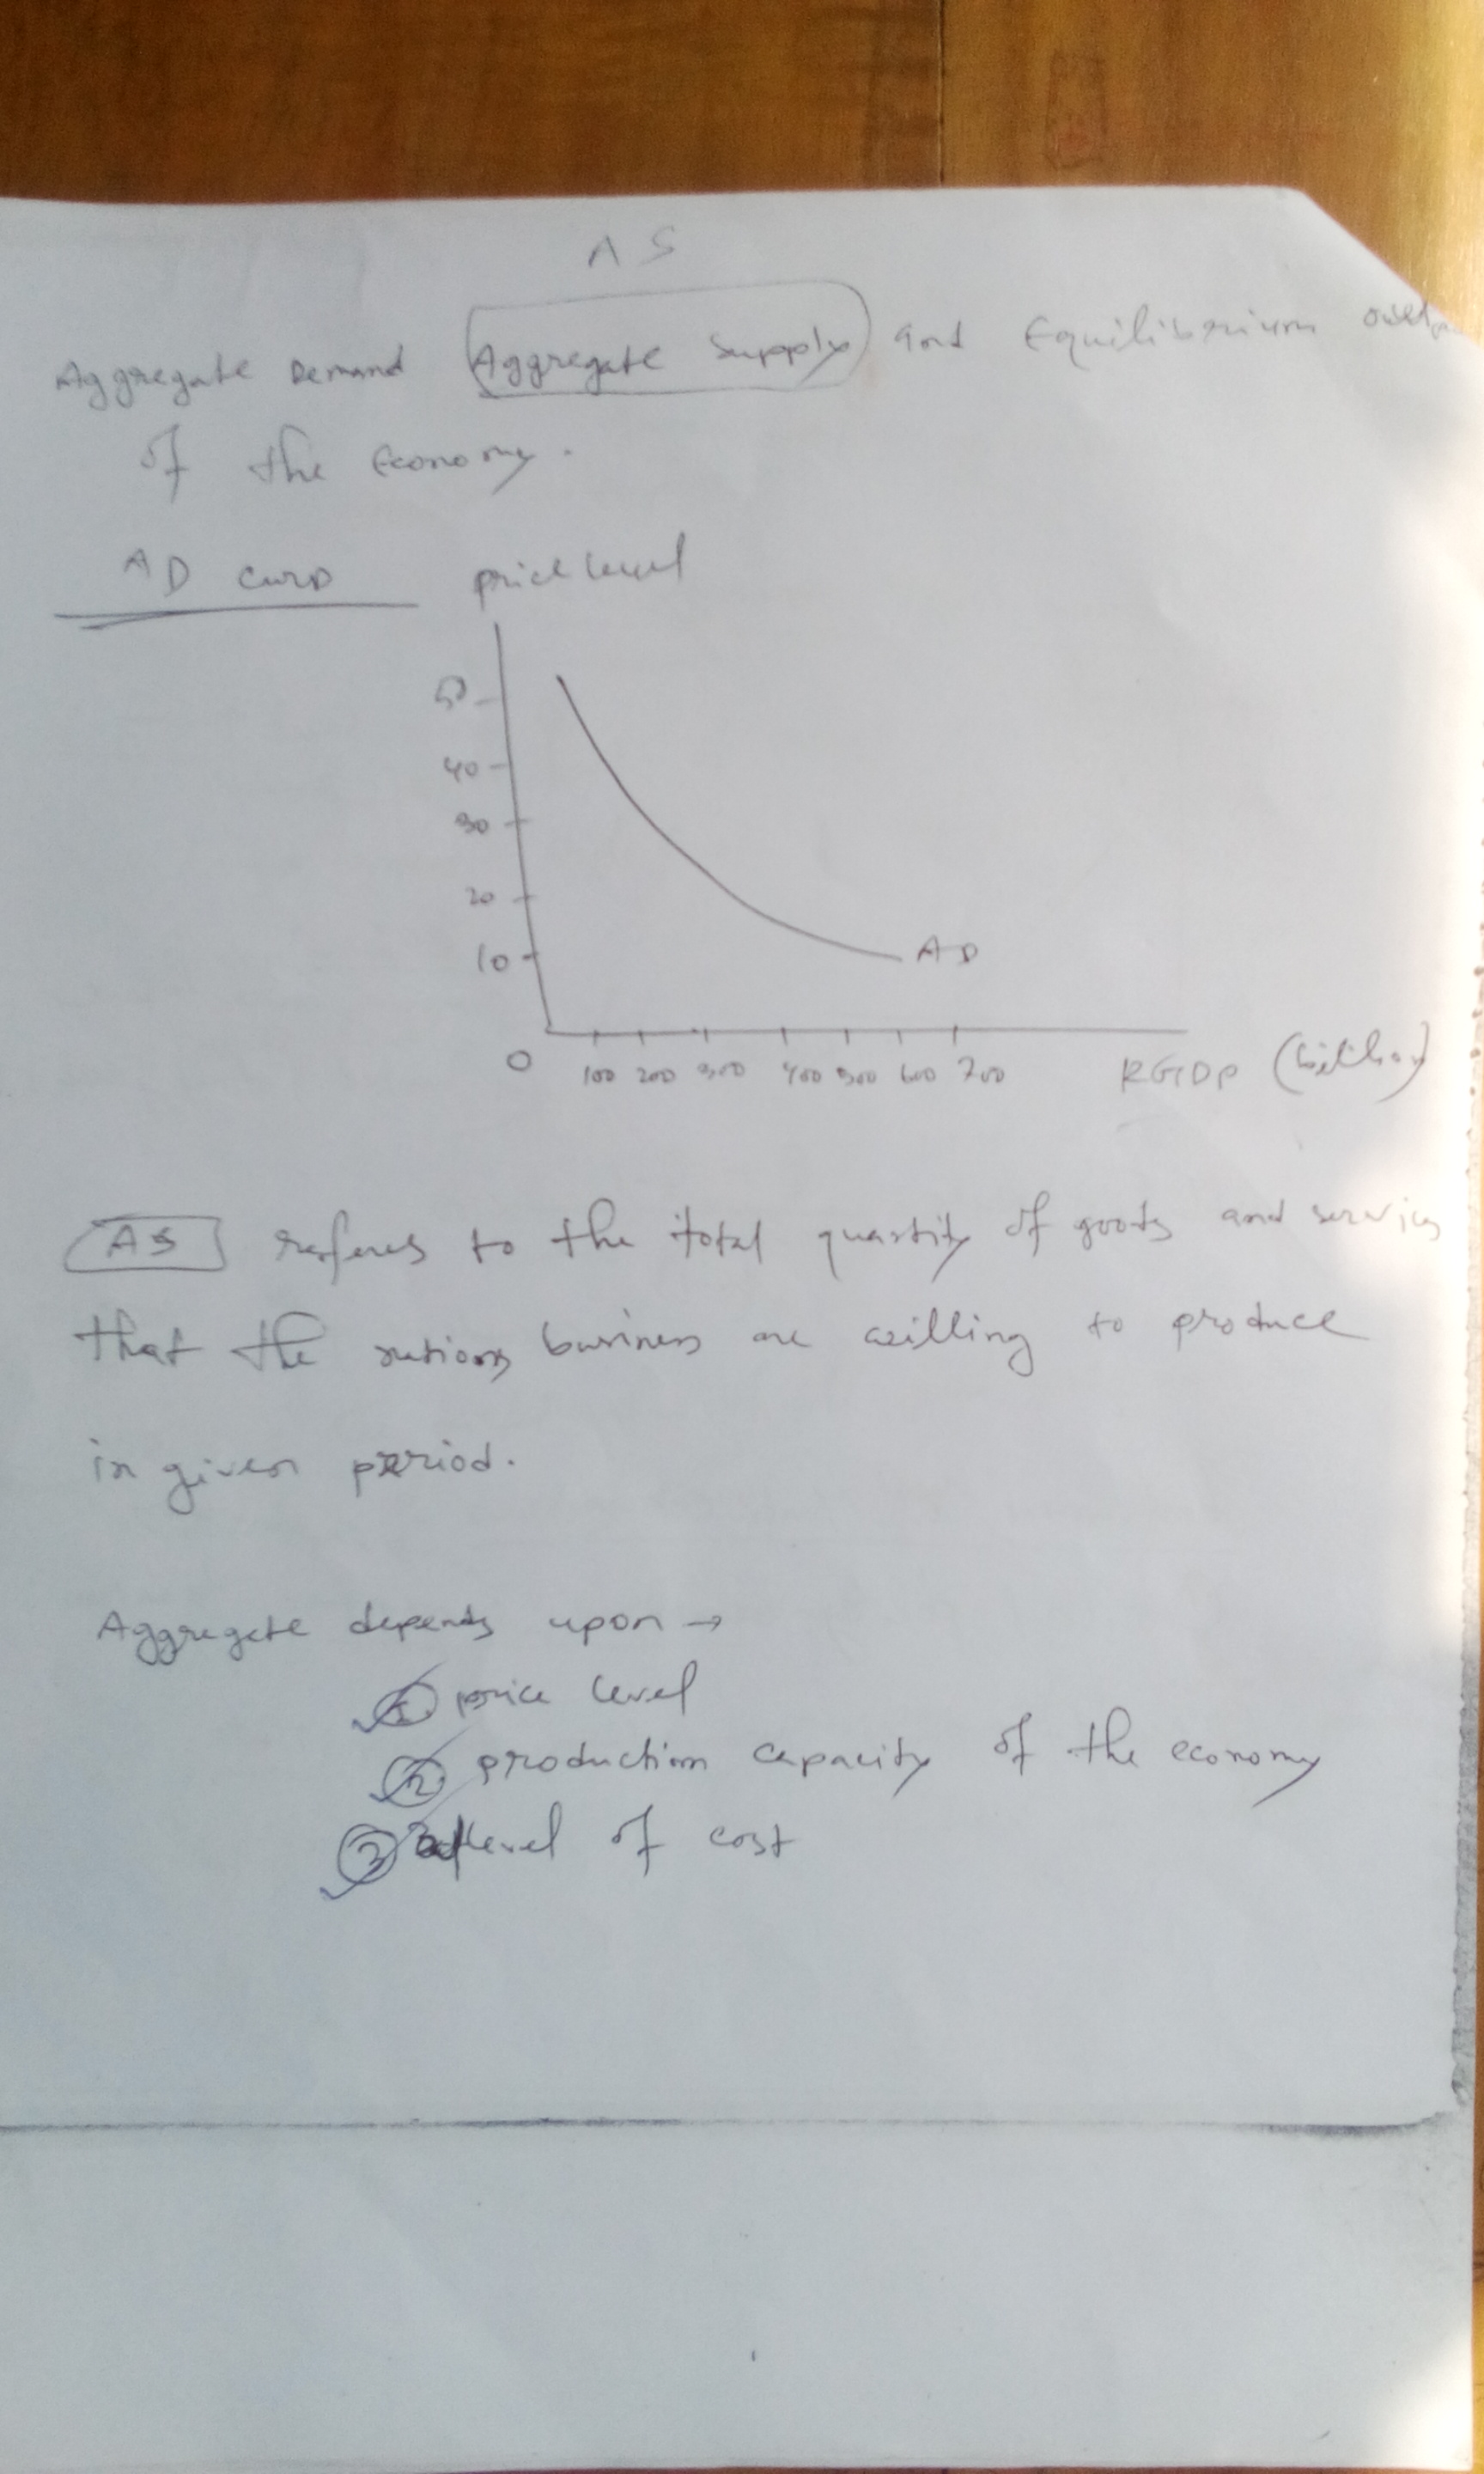 AS
Aggregate Demand Aggregate Supply and Equilibrium
of the Economy.
AD curp price level
50
40
30
20
10
AD
0 100 200 300 400 500 600 700 RGDP (billion)
AS referes to the total quantity of goods and services
that the nations business are willing to produce
in given period.
Aggregate depends upon →
1 price level
2 production capacity of the economy
3 level of cost